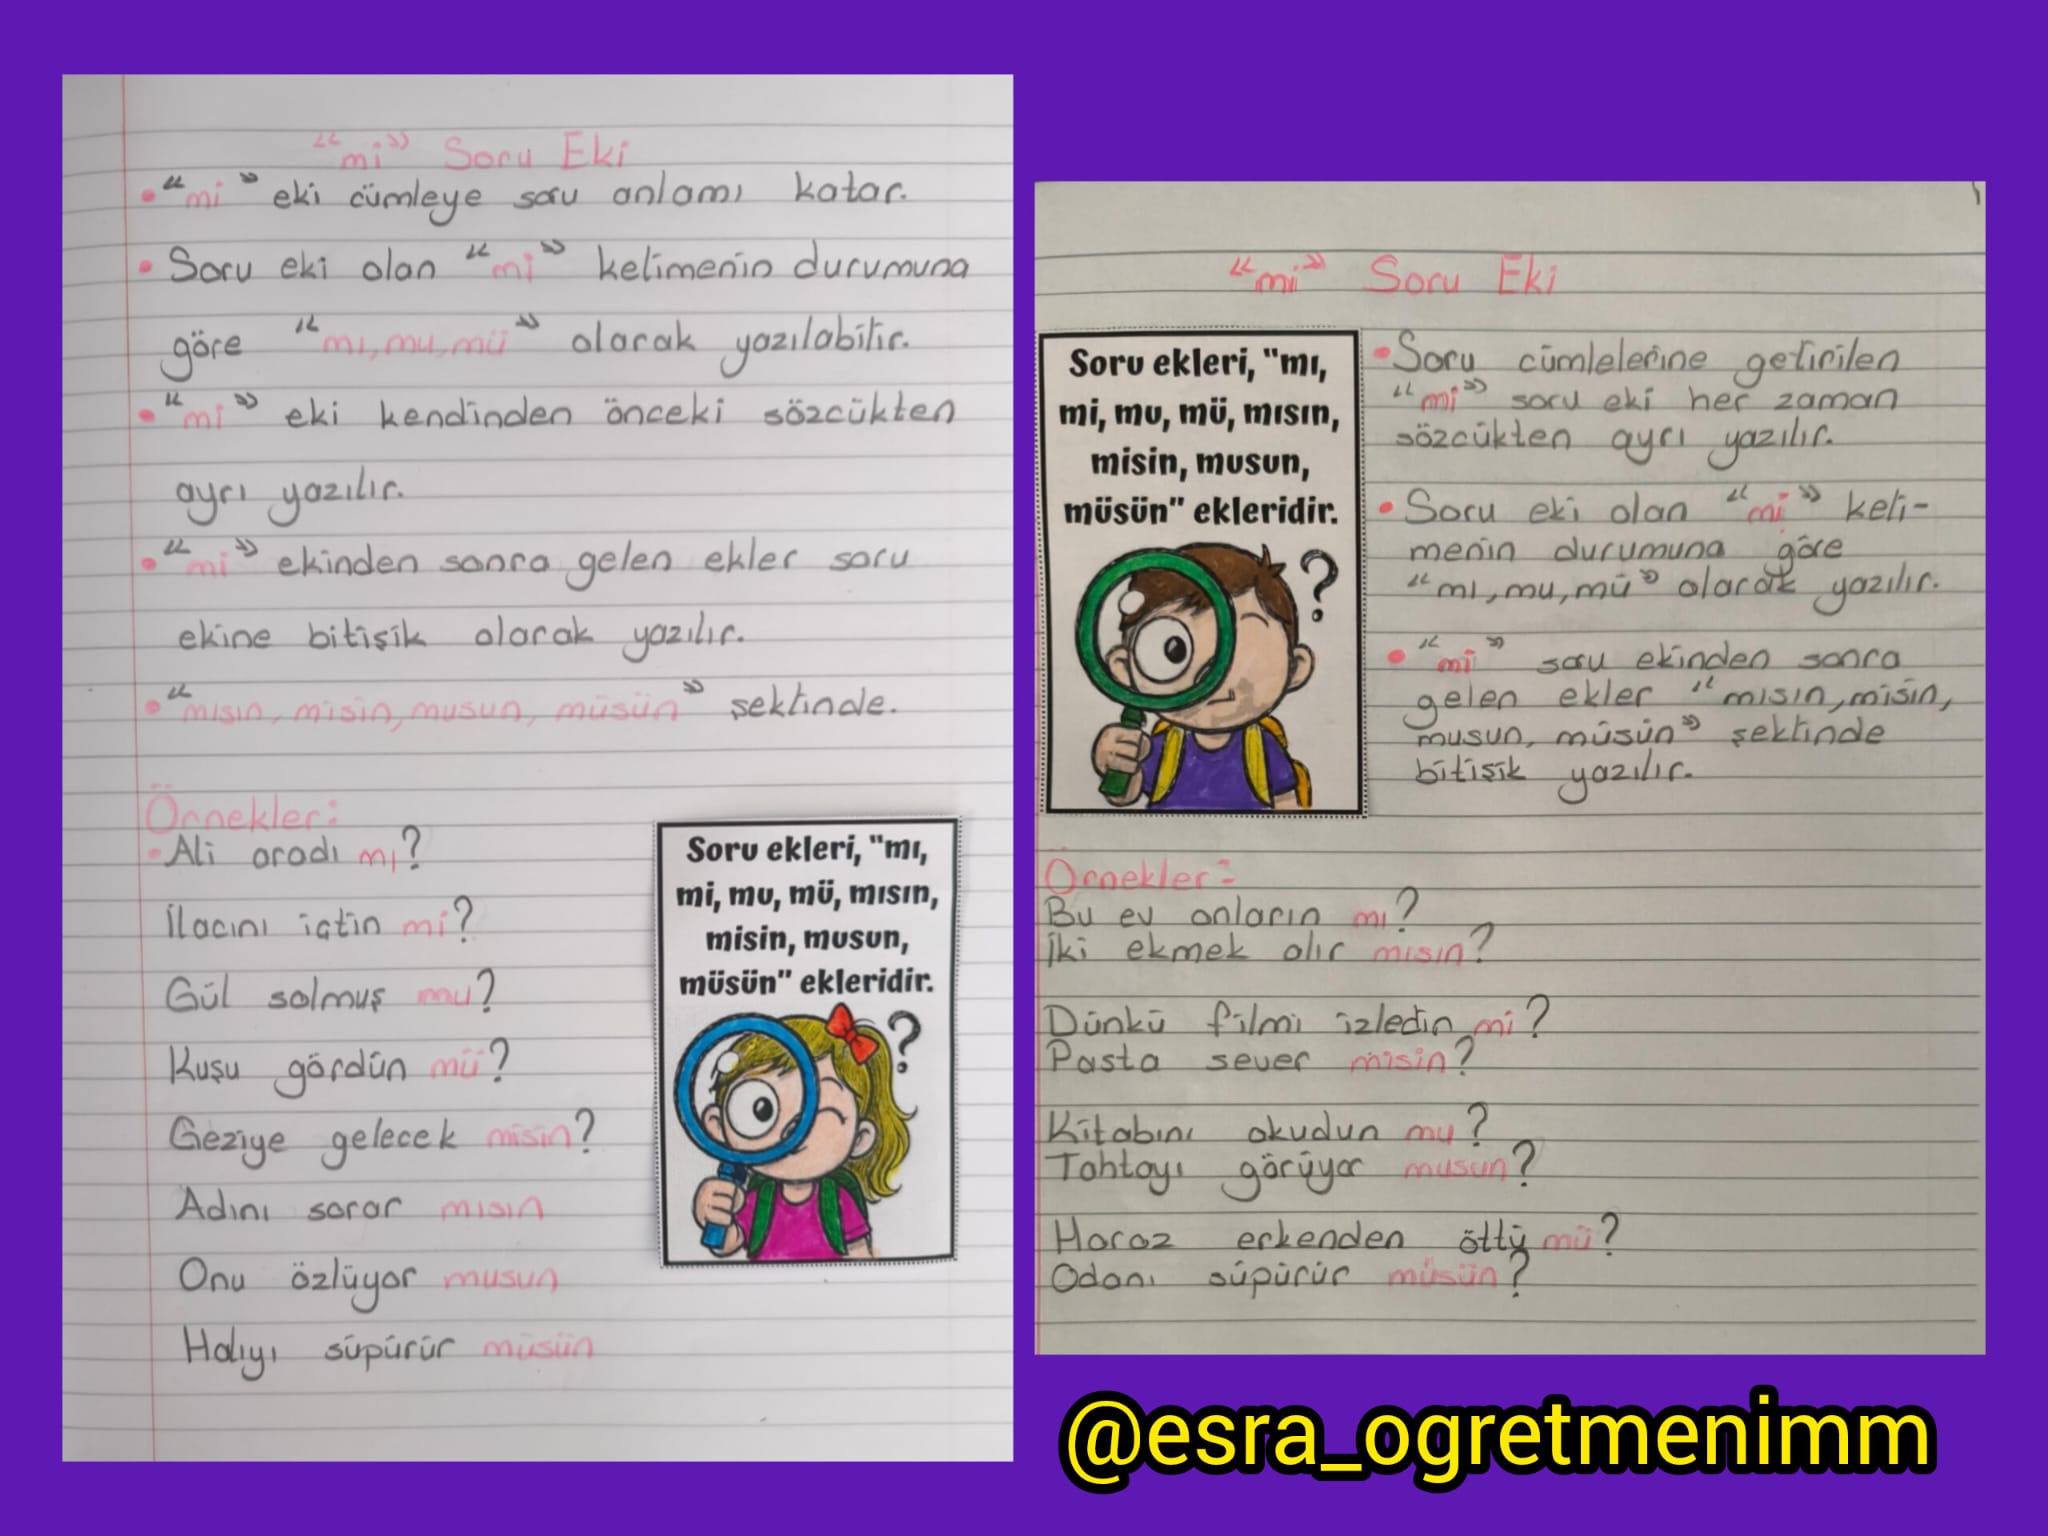 “mi” Soru Eki
• “mi” eki cümleye soru anlamı katar.
• Soru eki olan “mi” kelimenin durumuna
göre “mı, mu, mü” olarak yazılabilir.
• “mi” eki kendinden önceki sözcükten
ayrı yazılır.
• “mi” ekinden sonra gelen ekler soru
ekine bitişik olarak yazılır.
• “mısın, misin, musun, müsün” şeklinde.
Örnekler:
• Ali aradı mı?
İlacını içtin mi?
Gül solmuş mu?
Kuşu gördün mü?
Geziye gelecek misin?
Adını sorar mısın
Onu özlüyor musun
Halıyı süpürür müsün
Soru ekleri, "mı,
mi, mu, mü, mısın,
misin, musun,
müsün" ekleridir.
?
“mi” Soru Eki
Soru ekleri, "mı,
mi, mu, mü, mısın,
misin, musun,
müsün" ekleridir.
?
• Soru cümlelerine getirilen
“mi” soru eki her zaman
sözcükten ayrı yazılır.
• Soru eki olan “mi” keli-
menin durumuna göre
“mı, mu, mü” olarak yazılır.
• “mi” soru ekinden sonra
gelen ekler “mısın, misin,
musun, müsün” şeklinde
bitişik yazılır.
Örnekler:
Bu ev onların mı?
İki ekmek alır mısın?
Dünkü filmi izledin mi?
Pasta sever misin?
Kitabını okudun mu?
Tahtayı görüyor musun?
Horoz erkenden öttü mü?
Odanı süpürür müsün?
@esra_ogretmenimm